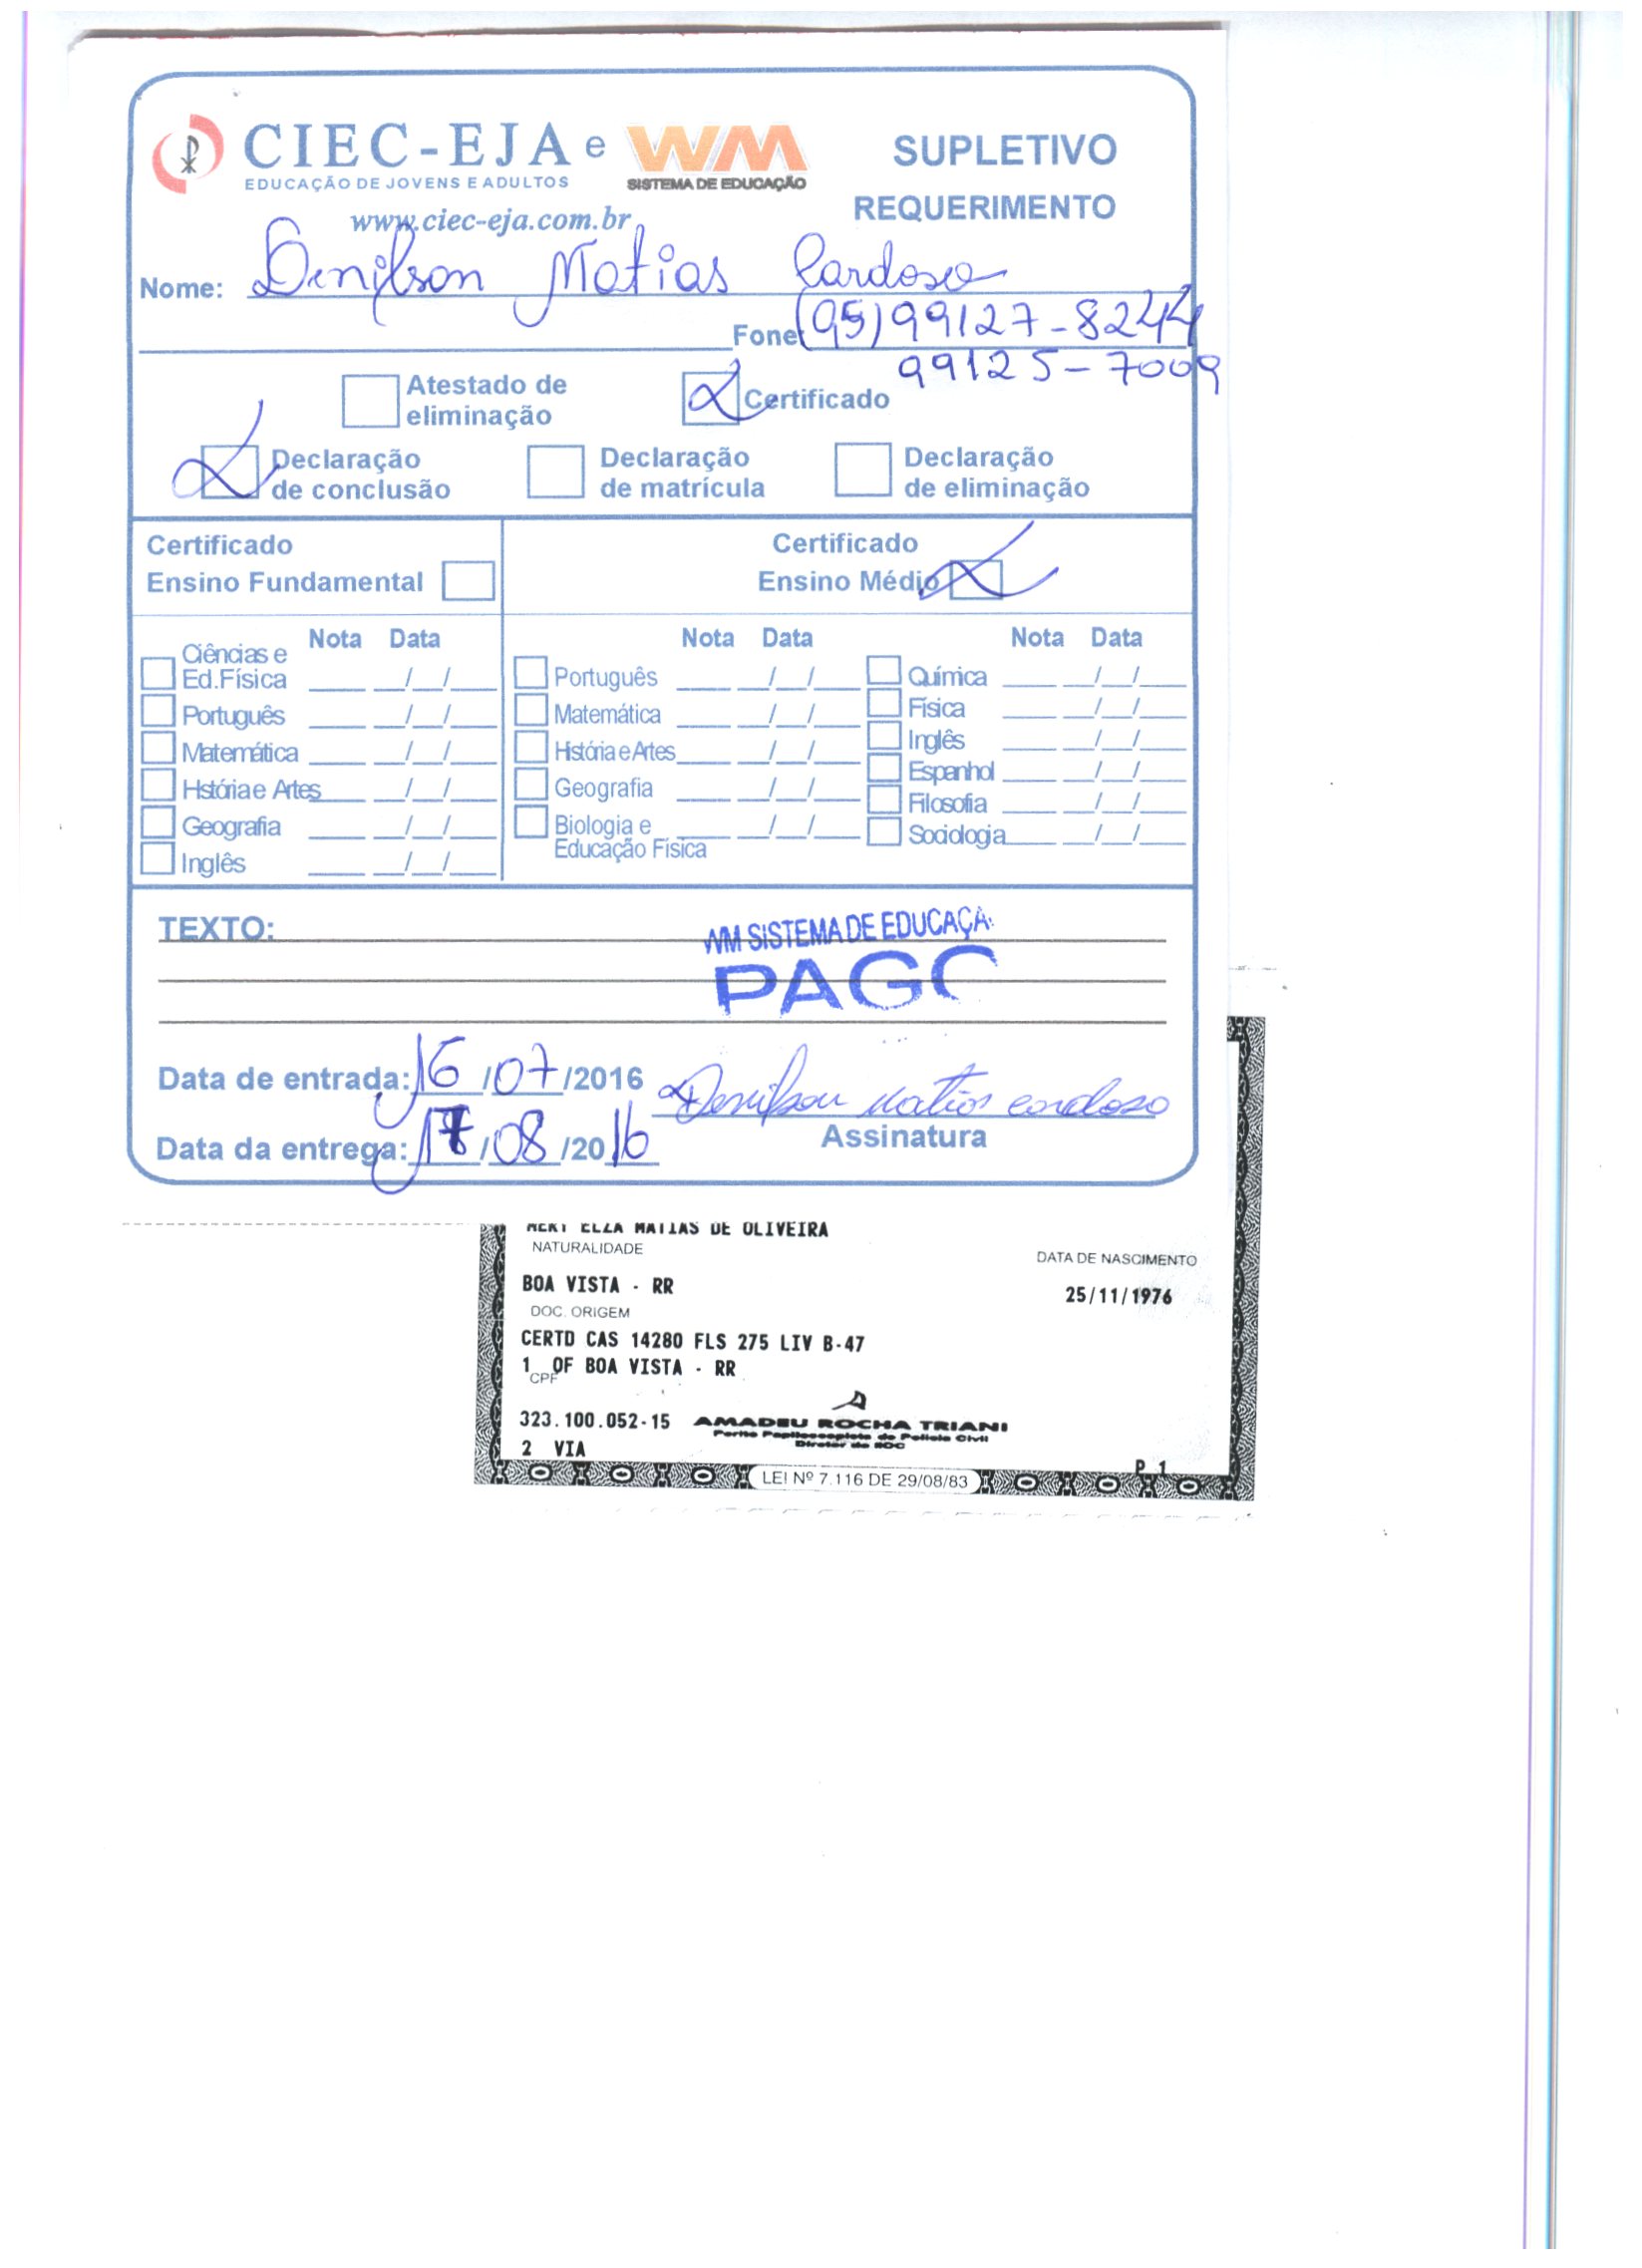 CIEC-EJA e WM SUPLETIVO
EDUCAÇÃO DE JOVENS E ADULTOS SISTEMA DE EDUCAÇÃO
www.ciec-eja.com.br REQUERIMENTO
Nome: Denilson Matias Cardoso
Fone (95) 99127-8244
99125-7009
Atestado de eliminação
Certificado
Declaração de conclusão
Declaração de matrícula
Declaração de eliminação
Certificado
Ensino Fundamental
Certificado
Ensino Médio
Nota Data
Ciências e
Ed.Física ____ __/__/__
Português ____ __/__/__
Matemática ____ __/__/__
Históriae Artes ____ __/__/__
Geografia ____ __/__/__
Inglês ____ __/__/__
Nota Data
Português ____ __/__/__
Matemática ____ __/__/__
História e Artes ____ __/__/__
Geografia ____ __/__/__
Biologia e ____ __/__/__
Educação Física
Nota Data
Química ____ __/__/__
Física ____ __/__/__
Inglês ____ __/__/__
Espanhol ____ __/__/__
Filosofia ____ __/__/__
Sociologia ____ __/__/__
TEXTO:
WM SISTEMA DE EDUCAÇÃ
PAGO
Data de entrada: 16/07/2016
Denilson Matias Cardoso
Assinatura
Data da entrega: 17/08/2016
MERY ELZA MATIAS DE OLIVEIRA
NATURALIDADE
DATA DE NASCIMENTO
BOA VISTA - RR
25/11/1976
DOC. ORIGEM
CERTD CAS 14280 FLS 275 LIV B-47
1 OF BOA VISTA - RR
CPF
323.100.052-15 AMADEU ROCHA TRIANI
Perito Papiloscopista de Polícia Civil
Diretor do
2 VIA
P 1
LEI Nº 7.116 DE 29/08/83